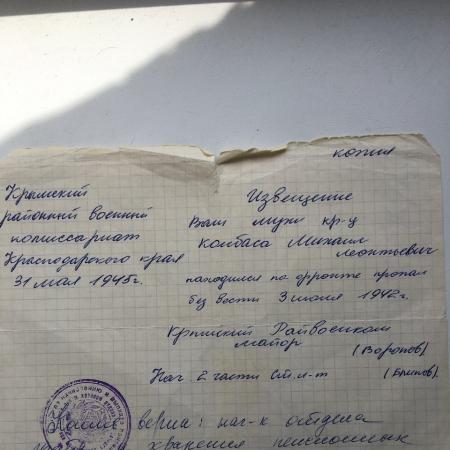 копия
Крымский
районный военный
комиссариат
Краснодарского края
31 мая 1945г.
Извещение
Ваш муж кр-ц
Колбаса Михаил
Леонтьевич
находился на фронте пропал
без вести 3 июня 1942г.
Крымский Райвоенком
майор (Воронов)
Нач. 2 части Ст. л-т
Копия верна: нач-к отдела
хранения пенсионных